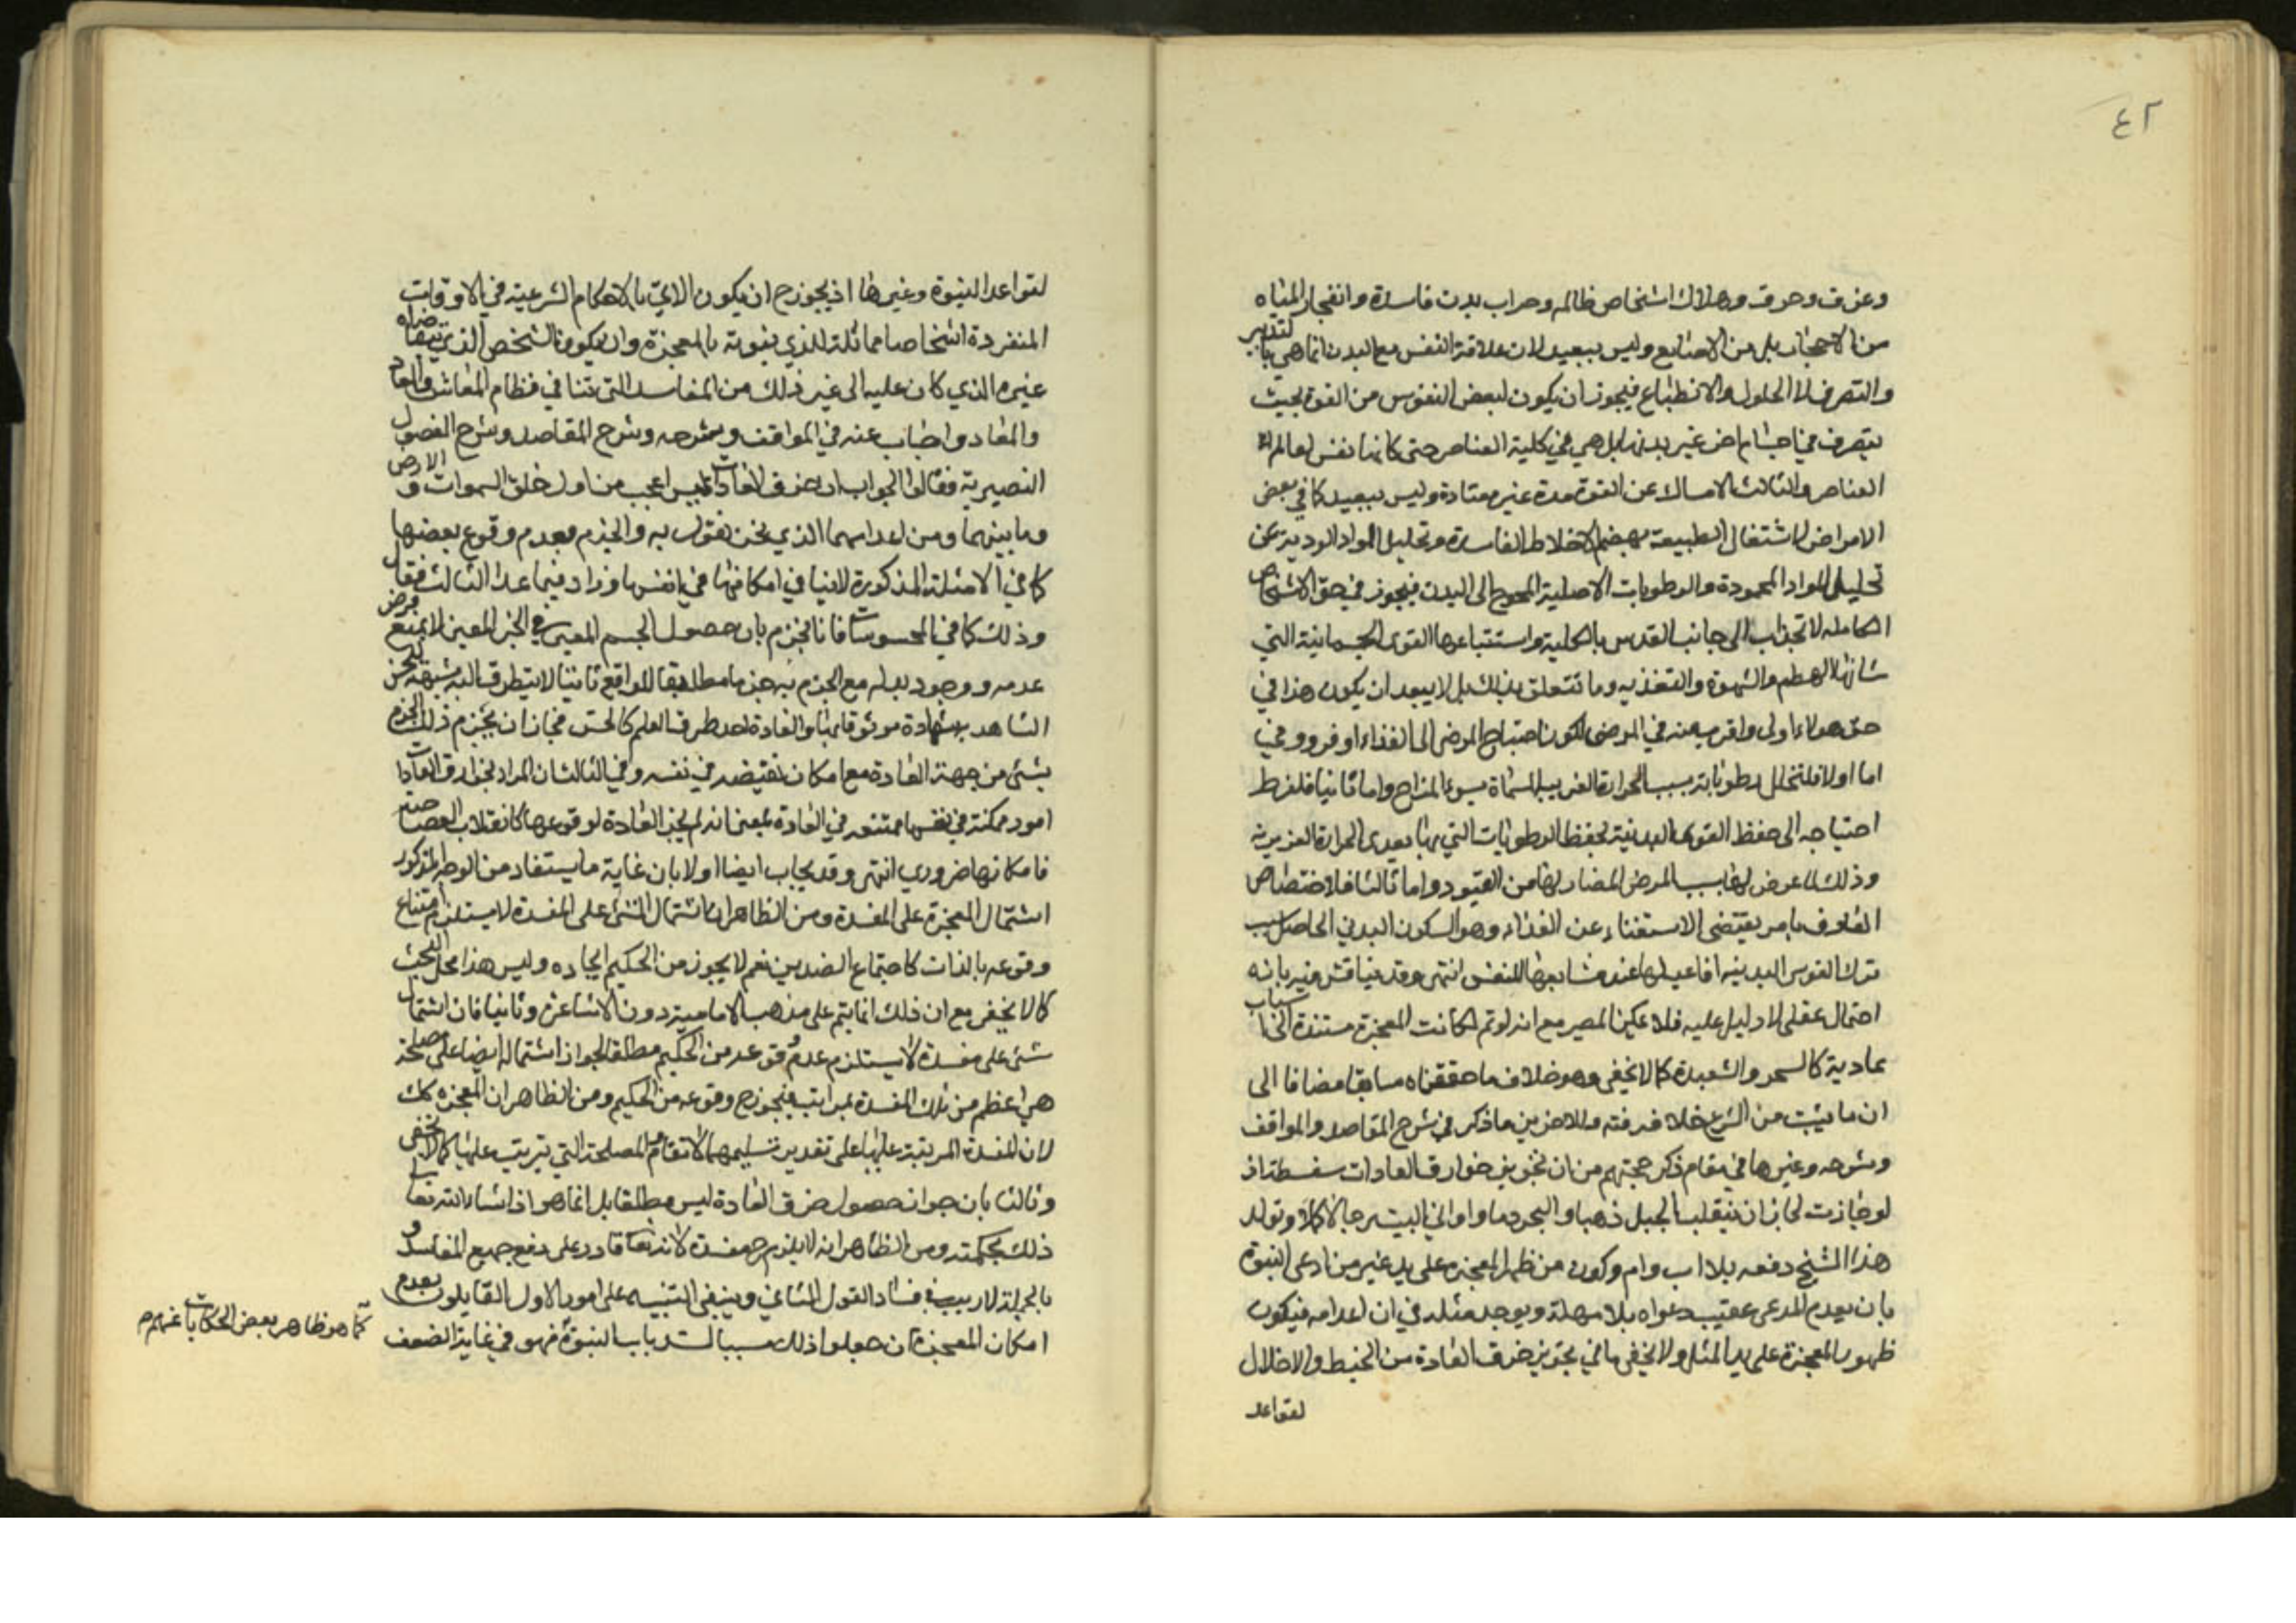 ٤٢
وغرق وحرق وهلاك اشخاص ظالمه وخراب بدن فاسدة وانفجار المياه
من الاحجار بل من الاصابع وليس ببعيد لان علاقة النفس مع البدن انما هي بالتدبير
والتصرف لا الحلول والانطباع فيجوز ان يكون لبعض النفوس من القوة بحيث
يتصرف في اجسام اخر غير بدنها بل هي في كلية العناصر حتى كانها نفس لعالم
العناصر والثالث الامساك عن القوت مدة غير معتادة وليس ببعيد كما في بعض
الامراض لاشتغال الطبيعة بهضم الاخلاط الفاسدة وتحليل المواد الردية عن
تحليل المواد المحمودة والرطوبات الاصلية المحوج الى البدل فيجوز في حق الاشخاص
الكامله لانجذاب الى جانب القدس بالكلية واستتباعها القوى الجسمانية التي
شانها الهضم والشهوة والتغذيه وما تتعلق بذلك بل لا يبعد ان يكون هذا في
حق هولاء اولى واقرب منه في المرضى لكون احتياج المرض الى الغذاء اوفر ووفى
اما اولا فلتحلل رطوباته بسبب الحرارة الغريبة المسماة بسوء المزاج واما ثانيا فلفرط
احتياجه الى حفظ القوى البدنية بحفظ الرطوبات التي بها تعدى الحرارة الغريزية
وذلك لما عرض لها بسبب المرض المضاد لها من الفتور واما ثالثا فلاختصاص
العارف بامر يقتضى الاستغناء عن الغذاء وهو السكون البدني الحاصل بسبب
ترك القوى البدنيه افاعيلها عند مشايعتها للنفس انتهى وقد يناقش فيه بانه
احتمال عقلى لا دليل عليه فلا يمكن المصير مع انه لو تم لكانت المعجزة مستندة الى اسباب
عادية كالسحر والشعبدة كما لا يخفى وهو خلاف ما حققناه سابقا مضافا الى
ان ما يثبت من الشرع خلافه فته وللاخرين ما ذكر في شرح المقاصد والمواقف
وشرحه وغيرها في مقام ذكر حجتهم من ان تجويز خوارق العادات سفسطة اذ
لو جازت لجاز ان ينقلب الجبل ذهبا والبحر دما واواني البيت رجالا كملا وتولد
هذا الشيخ دفعه بلا اب وام وكون من ظهر المعجزه على يد غير من ادعى النبوة
بان يعدم المدعى عقيب دعواه بلا مهلة ويوجد مثله في ان اعدامه فيكون
ظهور المعجزة على يد المثل ولا يخفى ما في تجويز خرق العادة من الخبط والاخلال
لقواعد
لقواعد النبوة وغيرها اذ يجوز ح ان يكون الاتي بالاحكام الشرعية في الاوقات
المتفردة اشخاصا مماثلة للذي ثبوته بالمعجزة وان يكون الشخص الذي تتقاضاه
غيره الذي كان عليه الى غير ذلك من المفاسد التي تنافي نظام المعاش والمعاد
والمعاد واجاب عنه في المواقف وشرحه وشرح المقاصد وشرح الفصول
النصيرية فقالوا الجواب ان خرق العادات ليس اعجب من اول خلق السموات والارض
وما بينهما ومن اعدامهما الذي نحن نقول به والجزم بعدم وقوع بعضها
كما في الامثلة المذكورة لا ينافي امكانها في انفسها وزاد فيما عدا الثالث فقال
وذلك كما في المحسوسات فانا نجزم بان حصول الجسم المعين في الحيز المعين لا يمنع فرض
عدمه ووجود بدله مع الجزم به جزما مطابقا للواقع ثابتا لا يتطرق اليه شبهة للحس
الشاهد به شهادة موثوقا بها والعادة احد طرق العلم كالحس فجاز ان نجزم ذلك الجزم
بشئ من جهة العادة مع امكان نقيضه في نفسه وفي الثالث ان المراد بخوارق العادات
امور ممكنة في نفسها ممتنعه في العادة بمعنى انه لم يجز العادة لوقوعها كانقلاب العصا حية
فامكانها ضروري انتهى وقد يجاب ايضا اولا بان غاية ما يستفاد من الوجه المذكور
اشتمال المعجزة على المفسدة ومن الظاهر ان اشتمال الشئ على المفسدة لا يستلزم امتناع
وقوعه بالذات كاجتماع الضدين نعم لا يجوز من الحكيم ايجاده وليس هذا محل البحث
كما لا يخفى مع ان ذلك انما يتم على مذهب الامامية دون الاشاعرة وثانيا فان اشتمال
شئ على مفسدة لا يستلزم عدم وقوعه من الحكيم مطلقا لجواز اشتماله ايضا على مصلحة
هي اعظم من تلك المفسدة بمراتب فيجوز ح وقوعه من الحكيم ومن الظاهر ان المعجزه كك
لان المفسدة المرتبة عليها على تقدير تسليمها لا تقاوم المصلحة التي يترتب عليها كما لا يخفى
وثالثا بان جواز حصول خرق العادة ليس مطلقا بل انما هو اذا شاء الله تعالى
ذلك بحكمته ومن الظاهر انه لا يلزم ح مفسدة لانه تعا قادر على دفع جميع المفاسد و
بالجملة لا ريب في فساد القول الثاني وينبغي التنبيه على امور الاول القايلون بعدم
امكان المعجزة ان جعلوا ذلك سببا لسد باب النبوة فهو في غاية الضعف
كما هو ظاهر بعض الحكايات عنهم م